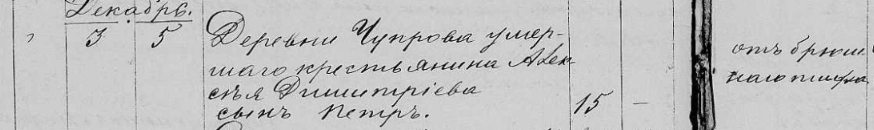 Декабрь.
3 5 Деревни Чупрова умер-
шаго крестьянина Алек-
сѣя Димитріева
сынъ Петръ. 15 —
отъ брюш
наго тифа